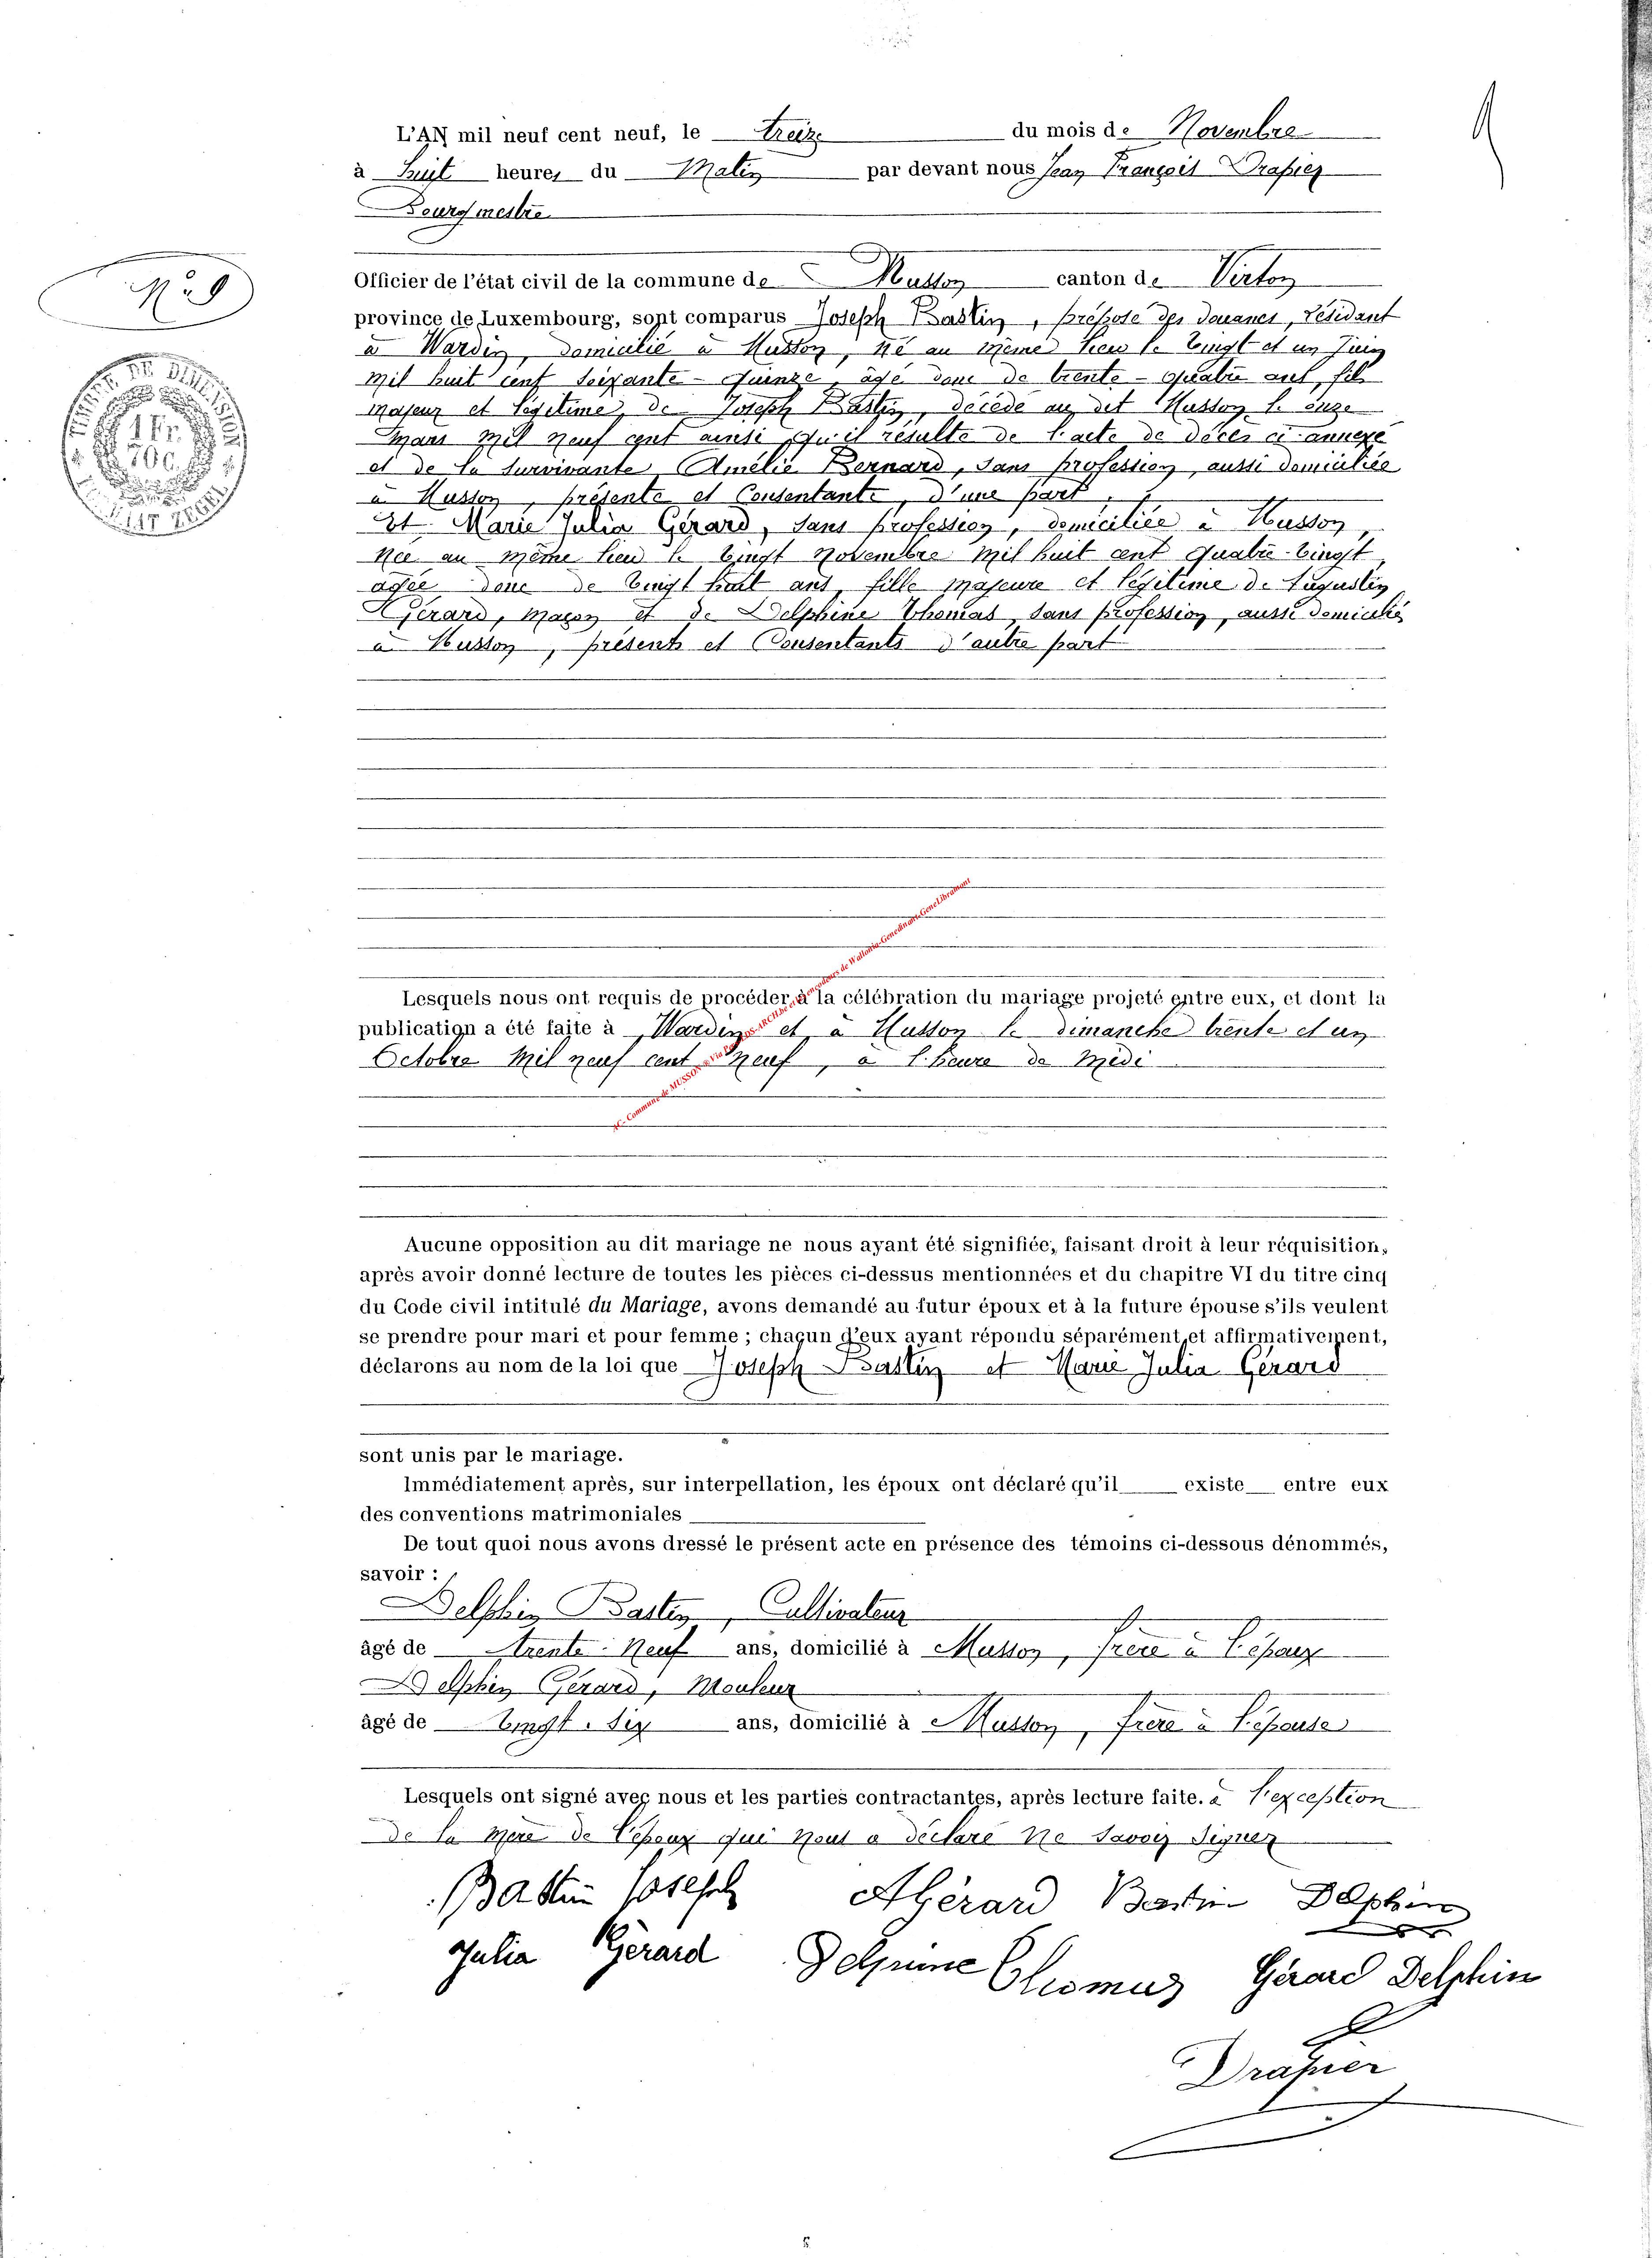 L'AN mil neuf cent neuf, le treize du mois de Novembre
à huit heures du Matin par devant nous Jean François Drapier
Bourgmestre
N° 9
Officier de l'état civil de la commune de Musson canton de Virton
province de Luxembourg, sont comparus Joseph Bastin, préposé des douanes, résidant
à Wardin, domicilié à Musson, né au même lieu le vingt et un Juin
mil huit cent soixante-quinze, âgé donc de trente-quatre ans, fils
majeur et légitime de Joseph Bastin, décédé au dit Musson le onze
Mars mil neuf cent ainsi qu'il résulte de l'acte de décès ci annexé
et de la survivante Amélie Bernard, sans profession, aussi domiciliée
à Musson, présente et Consentante, d'une part,
Et Marie Julia Gérard, sans profession, domiciliée à Musson,
née au même lieu le vingt Novembre mil huit cent quatre-vingt
âgée donc de vingt huit ans, fille majeure et légitime de Augustin
Gérard, maçon et de Delphine Thomas, sans profession, aussi domiciliés
à Musson, présents et Consentants d'autre part
Lesquels nous ont requis de procéder à la célébration du mariage projeté entre eux, et dont la
publication a été faite à Wardin et à Musson le dimanche trente et un
Octobre mil neuf cent neuf, à l'heure de midi
Aucune opposition au dit mariage ne nous ayant été signifiée, faisant droit à leur réquisition,
après avoir donné lecture de toutes les pièces ci-dessus mentionnées et du chapitre VI du titre cinq
du Code civil intitulé du Mariage, avons demandé au futur époux et à la future épouse s'ils veulent
se prendre pour mari et pour femme ; chacun d'eux ayant répondu séparément et affirmativement,
déclarons au nom de la loi que Joseph Bastin et Marie Julia Gérard
sont unis par le mariage.
Immédiatement après, sur interpellation, les époux ont déclaré qu'il existe entre eux
des conventions matrimoniales
De tout quoi nous avons dressé le présent acte en présence des témoins ci-dessous dénommés,
savoir :
Delphin Bastin, Cultivateur
âgé de trente-neuf ans, domicilié à Musson, frère à l'époux
Delphin Gérard, Mouleur
âgé de vingt-six ans, domicilié à Musson, frère à l'épouse
Lesquels ont signé avec nous et les parties contractantes, après lecture faite. à l'exception
de la mère de l'époux qui nous a déclaré ne savoir signer
Bastin Joseph AGérard Bastin Delphin
Julia Gérard Delphine Thomas Gérard Delphin
Drapier